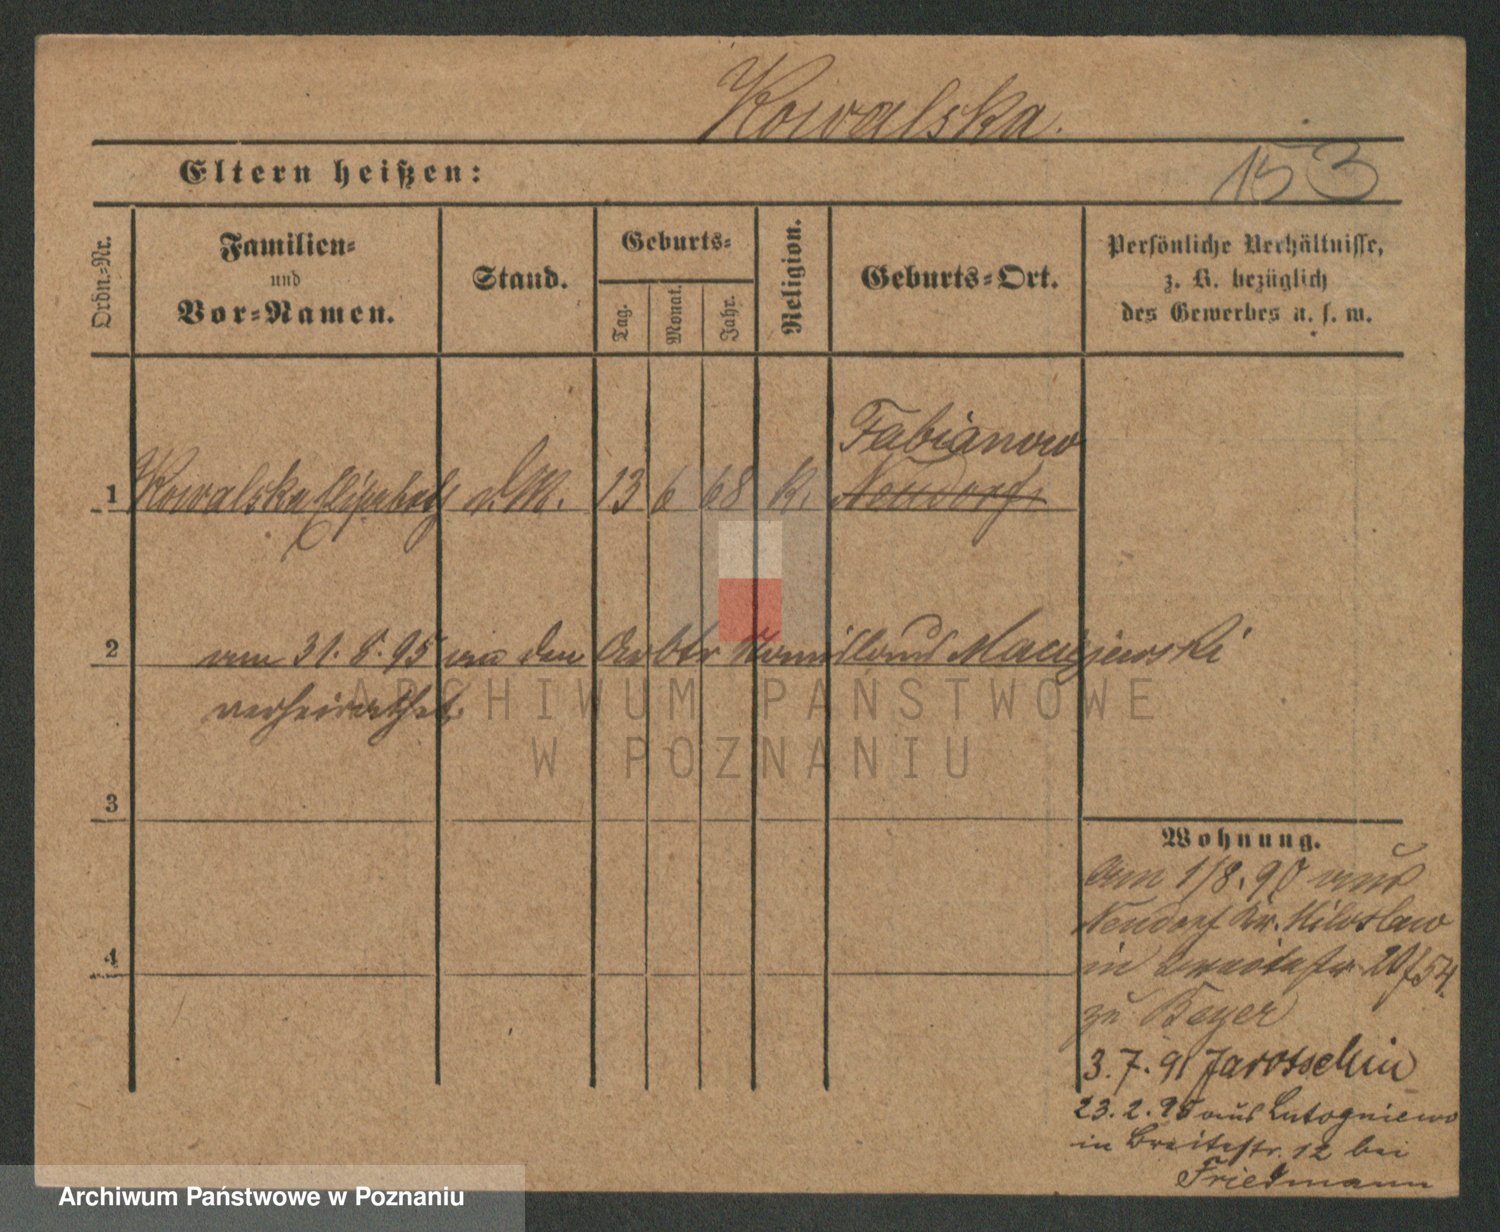 Kowalska.
Eltern heißen:
153
Ordn.-Nr.
Familien-
und
Vor-Namen.
Stand.
Geburts-
Tag.
Monat.
Jahr.
Religion.
Geburts-Ort.
Persönliche Verhältnisse,
z. B. bezüglich
des Gewerbes u. s. w.
Fabianowo
1 Kowalska Elisabeth d. M. 13 6 68 k. Neudorf
2 am 31. 8. 95 an den Arbtr Maciejewski
verheirathet.
3
4
Wohnung.
Am 1/8. 90 aus
Neudorf Kr. Miloslaw
in Breitestr 20/54.
zu Beyer
3. 7. 91 Jarotschin
23. 2. 95 aus Lutogniewo
in Breitestr. 12 bei
Friedmann
ARCHIWUM PAŃSTWOWE
W POZNANIU
Archiwum Państwowe w Poznaniu